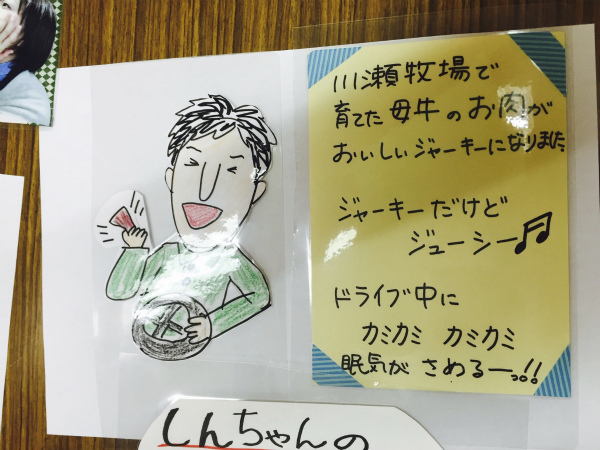 川瀬牧場で
育てた母牛のお肉が
おいしいジャーキーになりました
ジャーキーだけど
ジューシー🎵
ドライブ中に
カミカミ カミカミ
眠気がさめるーっ!!
しんちゃんの